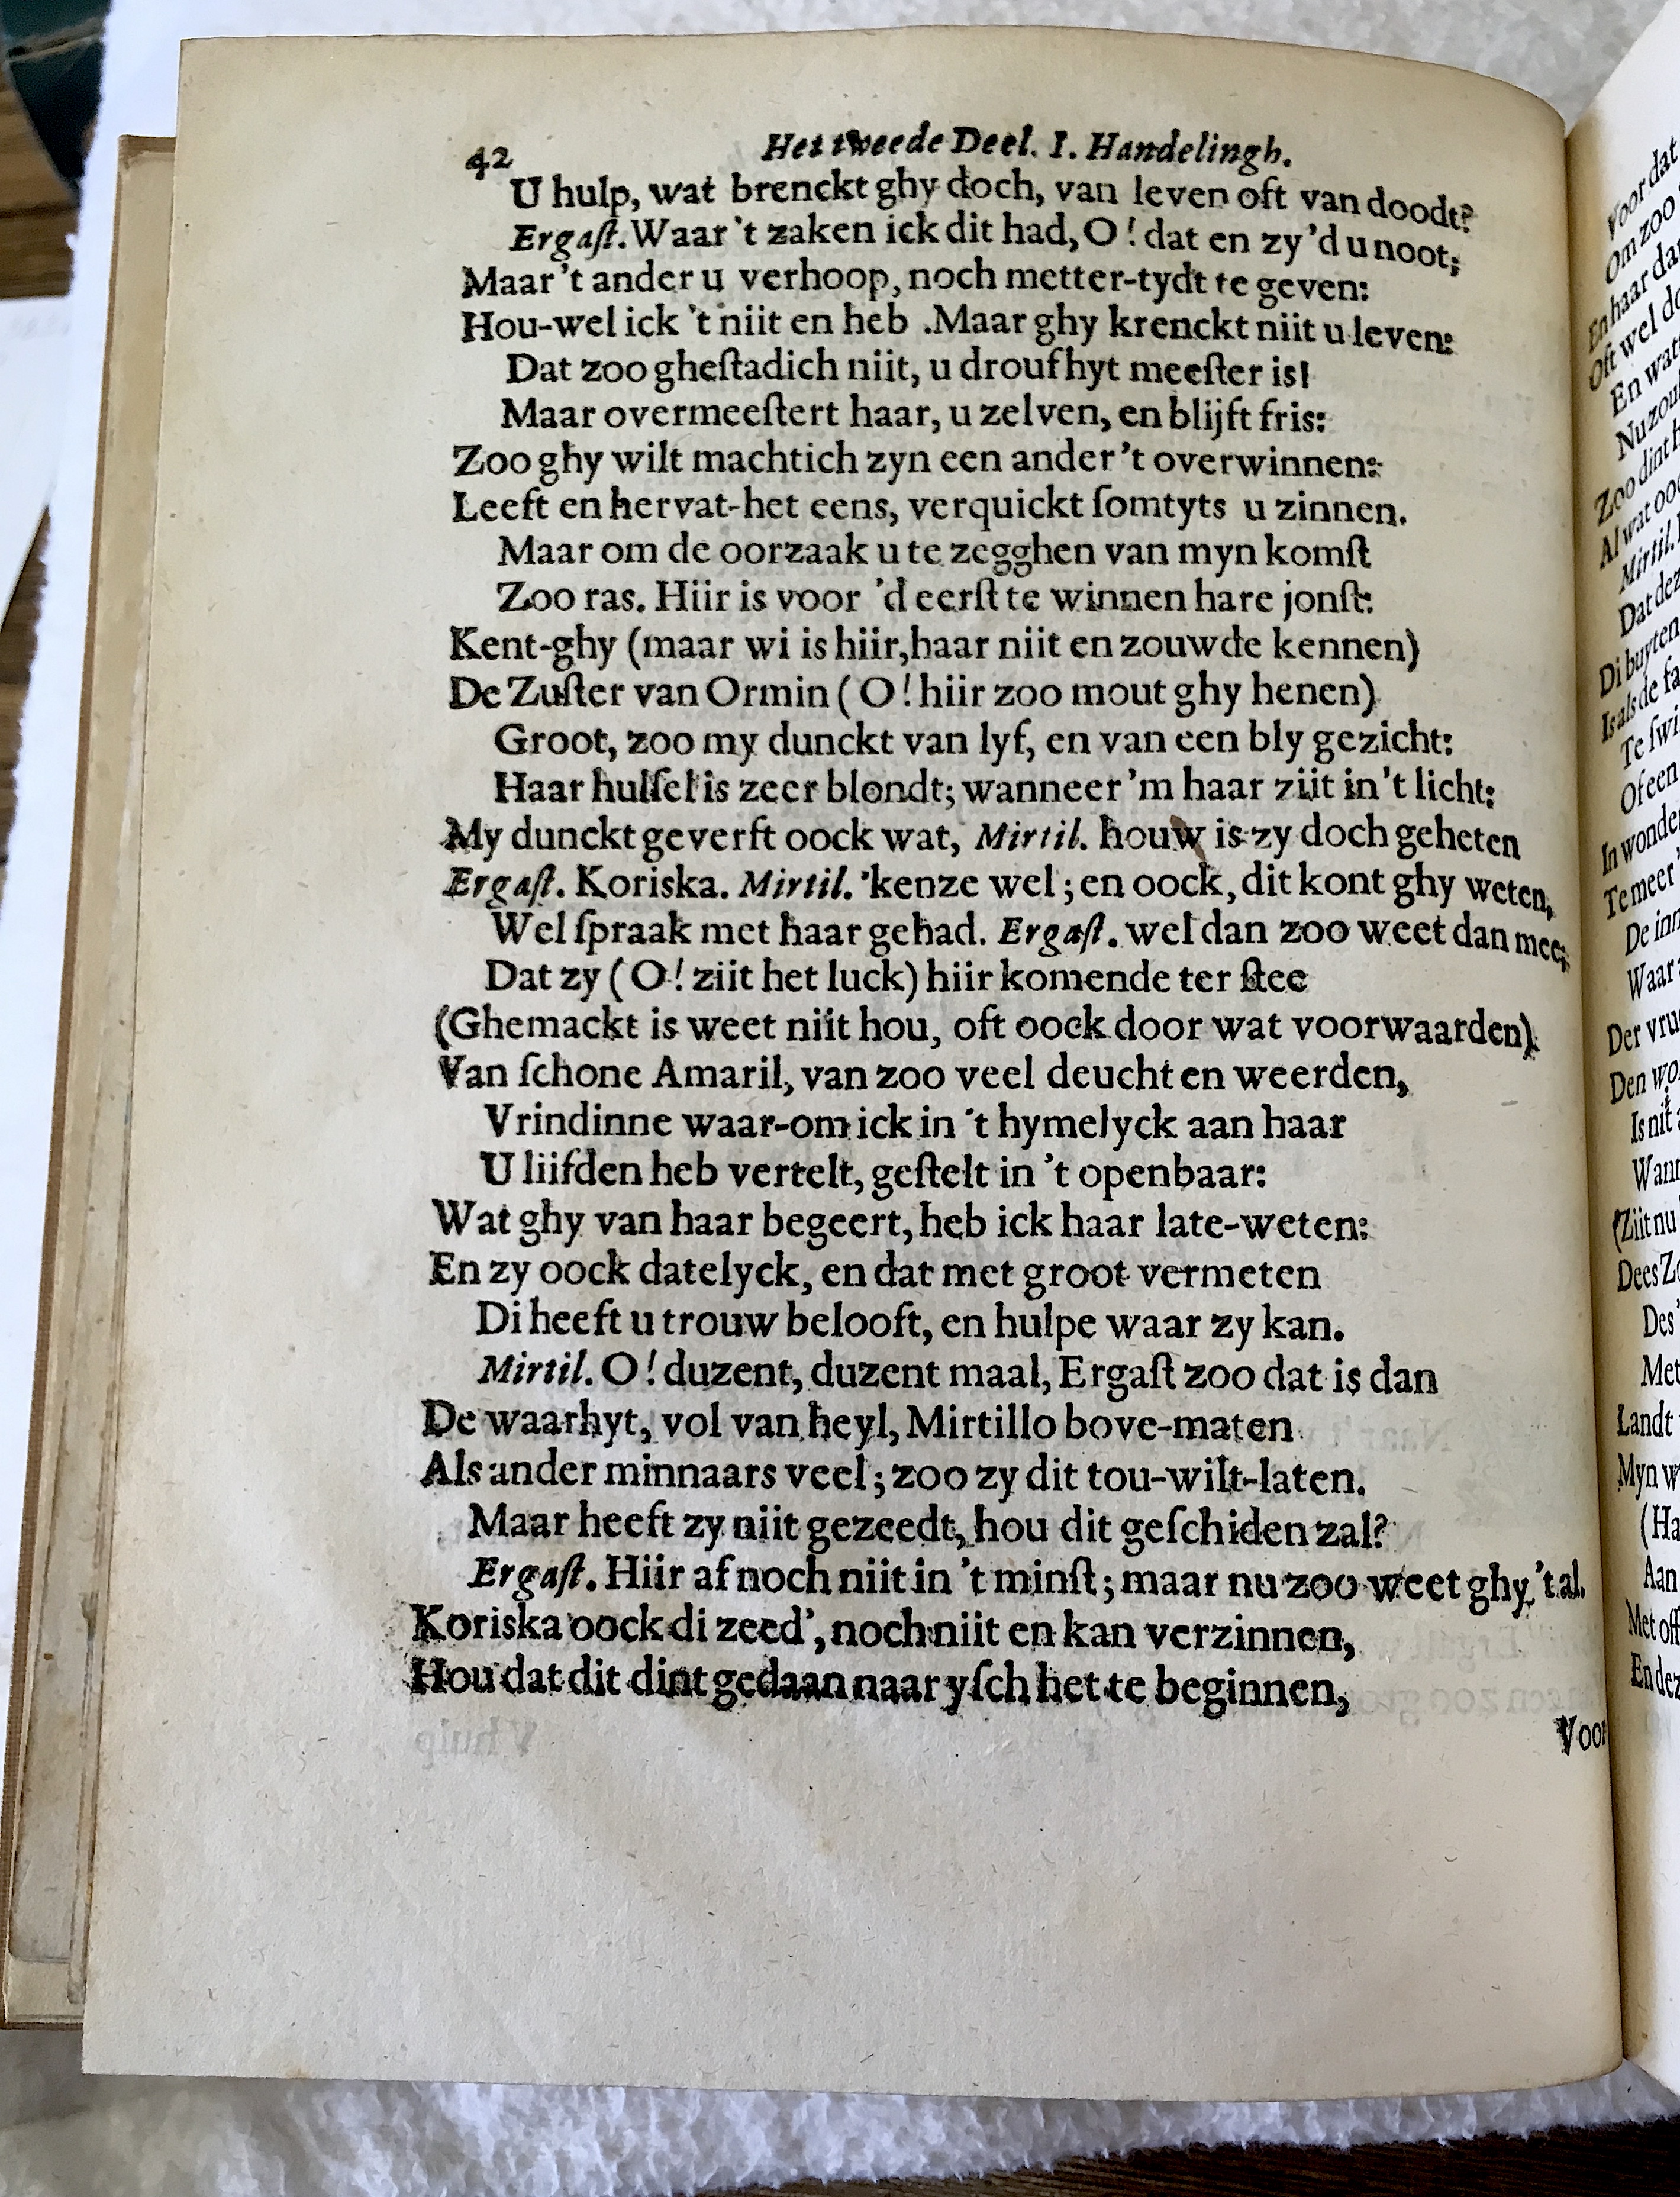 42 Het tweede Deel. I. Handelingh.
U hulp, wat brenckt ghy doch, van leven oft van doodt?
Ergaſt. Waar 't zaken ick dit had, O! dat en zy 'd u noot;
Maar 't ander u verhoop, noch metter-tydt te geven:
Hou-wel ick 't niit en heb . Maar ghy krenckt niit u leven:
Dat zoo gheſtadich niit, u droufhyt meeſter is!
Maar overmeeſtert haar, u zelven, en blijft fris:
Zoo ghy wilt machtich zyn een ander 't overwinnen:
Leeft en hervat-het eens, verquickt ſomtyts u zinnen.
Maar om de oorzaak u te zegghen van myn komſt
Zoo ras. Hiir is voor 'd eerſt te winnen hare jonſt:
Kent-ghy (maar wi is hiir, haar niit en zouwde kennen)
De Zuſter van Ormin ( O! hiir zoo mout ghy henen)
Groot, zoo my dunckt van lyf, en van een bly gezicht:
Haar hulſel is zeer blondt; wanneer 'm haar ziit in 't licht:
My dunckt geverft oock wat, Mirtil. houw is zy doch geheten
Ergaſt. Koriska. Mirtil. 'kenze wel; en oock, dit kont ghy weten,
Wel ſpraak met haar gehad. Ergaſt. wel dan zoo weet dan mee;
Dat zy ( O! ziit het luck) hiir komende ter ſtee
(Ghemackt is weet niit hou, oft oock door wat voorwaarden)
Van ſchone Amaril, van zoo veel deucht en weerden,
Vrindinne waar-om ick in 't hymelyck aan haar
U liifden heb vertelt, geſtelt in 't openbaar:
Wat ghy van haar begeert, heb ick haar late-weten:
En zy oock datelyck, en dat met groot vermeten
Di heeft u trouw belooft, en hulpe waar zy kan.
Mirtil. O! duzent, duzent maal, Ergaſt zoo dat is dan
De waarhyt, vol van heyl, Mirtillo bove-maten
Als ander minnaars veel; zoo zy dit tou-wilt-laten.
Maar heeft zy niit gezeedt, hou dit geſchiden zal?
Ergaſt. Hiir af noch niit in 't minſt; maar nu zoo weet ghy 't al.
Koriska oock di zeed', noch niit en kan verzinnen,
Hou dat dit dint gedaan naar yſch het te beginnen,
Voor
Voor dat
Om zoo
En haar dan
Oft wel do
En wat
Nu zou
Zoo dint h
Al wat ooc
Mirtil.
Dat dez
Di buyten
Is als de fa
Te ſwi
Of een
In wonde
Te meer
De inn
Waar
Der vru
Den wo
Is nit
Wann
(Ziit nu
Dees Zo
Des
Met
Landt
Myn w
(Ha
Aan
Met off
En dez